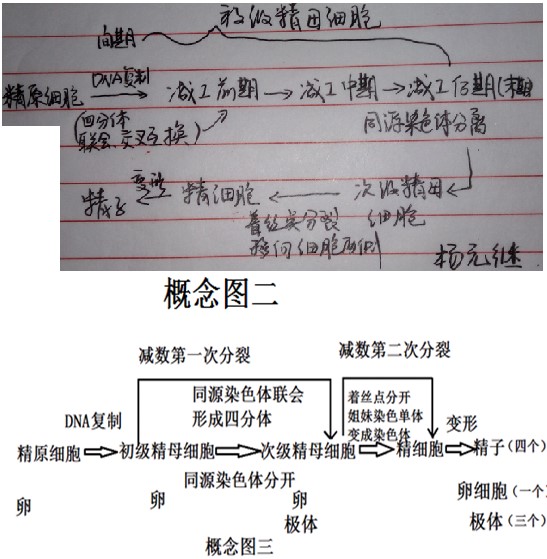 初级精母细胞
间期
DNA复制
精原细胞 → 减I前期 → 减I中期 → 减I后期(末期
(四分体
联会 交叉互换)
同源染色体分离
变形
精子 ← 精细胞 ← 次级精母
细胞
着丝点分裂
移向细胞两侧
杨元继
概念图二
减数第一次分裂 减数第二次分裂
同源染色体联会
形成四分体
着丝点分开
姐妹染色单体
变成染色体
DNA复制 变形
精原细胞 初级精母细胞 次级精母细胞 精细胞 精子(四个)
同源染色体分开
卵 卵 卵 卵细胞(一个)
极体 极体(三个)
概念图三